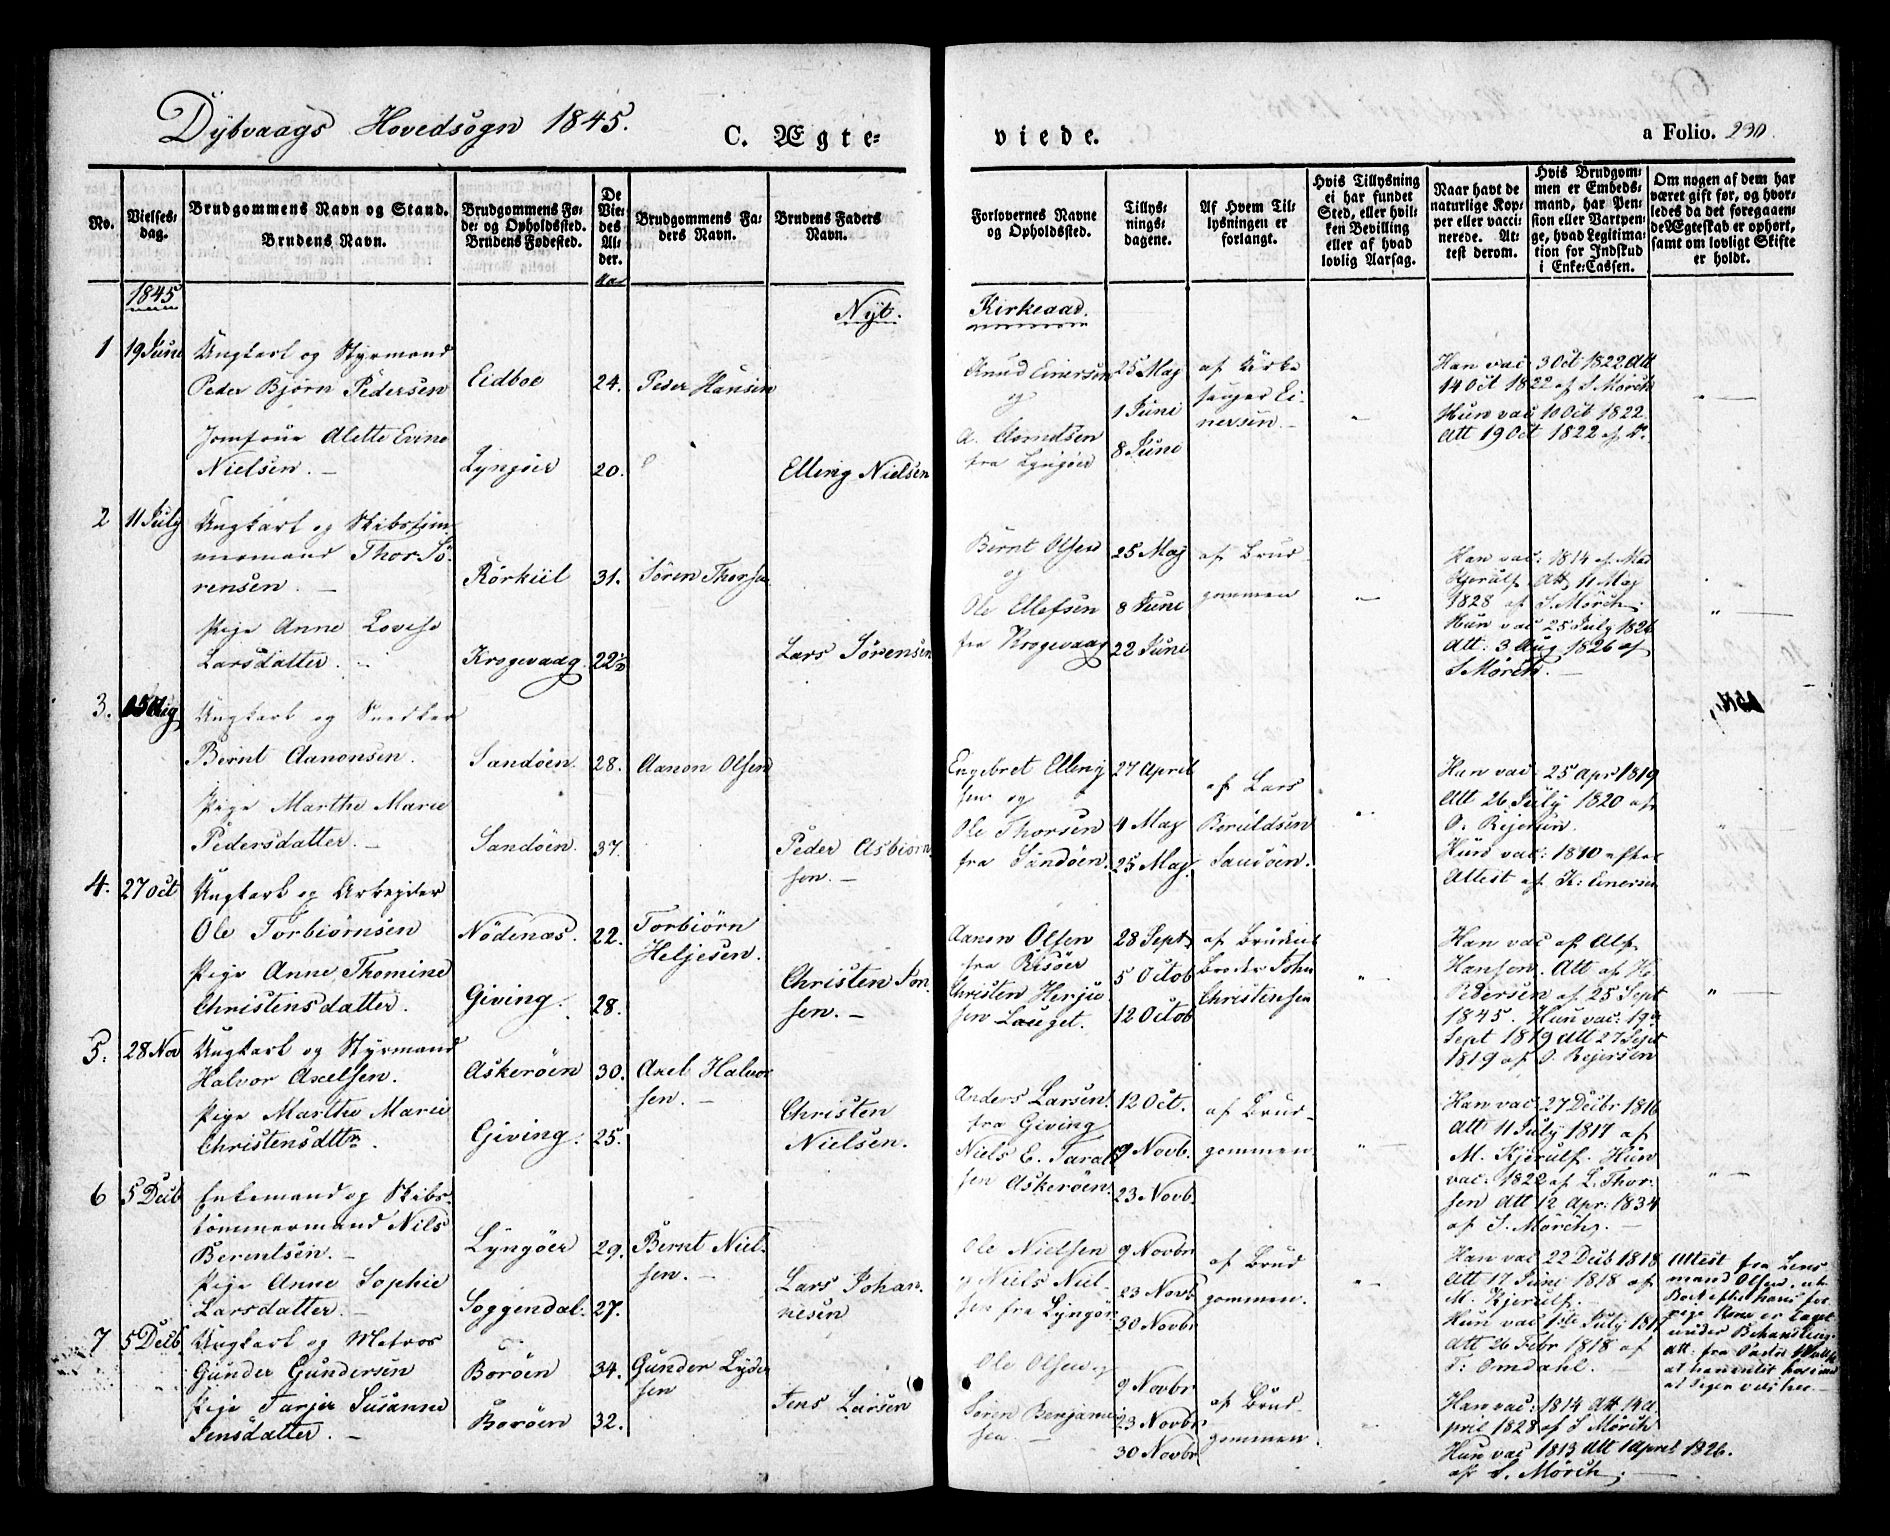 Dybvaags Hovedsogn 1845.
C. Ægte-
viede.
a Folio. 230.
No.
Vielses-
dag.
Brudgommens Navn og Stand.
Brudens Navn.
Brudgommens Fø-
de- og Opholdssted.
Brudens Fødested.
De
Vie-
des
Al-
der.
Aar
Brudgommens Fa-
ders Navn.
Brudens Faders
Navn.
Forlovernes Navne
og Opholdssted.
Tillys-
nings-
dagene.
Af Hvem Til-
lysningen er
forlangt.
Hvis Tillysning
ei har fundet
Sted, eller hvil-
ken Bevilling
eller af hvad
lovlig Aarsag.
Naar havt de
naturlige Kop-
per eller vacci-
nerede. At-
test derom.
Hvis Brudgom-
men er Embeds-
mand, har Pen-
sion eller Vartpen-
ge, hvad Legitima-
tion for Indskud
i Enke-Cassen.
Om nogen af dem har
været gift før, og hvor-
ledes da det foregaaen-
de Ægteskab er ophørt,
samt om lovligt Skifte
er holdt.
1845
Nyt.
Kirkeaad.
1
19 Juni
Ungkarl og Styrmand
Peder Bjørn Pedersen
Eidboe
24.
Peder Hansen
Jomfrue Alette Evine
Nielsen. –
Lyngöer
20.
Elling Nielsen
Knud Einersen
og
A. Aamdsen
fra Lyngöer
25 Maj
1 Juni
8 Juni
af Kirke
sanger Ei-
nersen. –
Han vac 3 Oct 1822 Att
14 Oct 1822 af S. Mörch
Hun vac 10 Oct 1822
Att 19 Oct 1822 af Do
2
11 July
Ungkarl og Skibstöm
mermand Thor Sö-
rensen. –
Rörkiil
31.
Sören Thorsen
Pige Anne Lovise
Larsdatter. –
Krogevaag
22½
Lars Sörensen
Bernt Olsen
og
Ole Ellefsen
fra Krogevaag
25 Maj
8 Juni
22 Juni
af Brud
gommen
Han vac: 1814 af Mad
Kjerulf Att 11 Maj
1828 af S. Mörch.
Hun vac 25 July 1826
Att: 3 Aug 1826 af
S Mörch. –
3.
15 Aug
Ungkarl og Snedker
Bernt Aanonsen.
Sandöen.
28.
Aanon Olsen
Pige Marthe Marie
Pedersdatter. –
Sandöen.
37.
Peder Asbiörn
sen. –
Engebret Elling
sen og
Ole Thorsen
fra Sandöen.
27 April
4 Maj
25 Maj.
af Lars
Beruldsen
Sandöen.
Han vac 25 Apr 1819
Att 26 July 1820 af
O. Rejersen.
Hun vac: 1810 efter
Attest af K: Einersen
4.
27 Oct
Ungkarl og Arbejder
Ole Torbiörnsen
Nödenæs.
22.
Torbiörn
Heljesen.
Pige Anne Thomine
Christensdatter.
Giving.
28.
Christen Jon-
sen. –
Aanon Olsen
fra Risöer
Christen Herju
sen Lauget.
28 Sept
5 Octob
12 Octob
af Brudens
Broder John
Christensen
Han vac af Alf
Hansen. Att af H.
Pedersen af 25 Sept
1845. Hun vac: 19de
Sept 1819 Att 27 Sept
1819 af O. Rejersen
5.
28 Nov
Ungkarl og Styrmand
Halvor Axelsen.
Askeröen
30.
Axel Halvor
sen. –
Pige Marthe Marie
Christensdttr.
Giving.
25.
Christen
Nielsen.
Anders Larsen.
fra Giving
Niels E. Taral
sen Askeröen.
12 Oct.
9 Novb.
23 Novb.
af Brud-
gommen.
Han vac 27 Decbr 1816
Att 11 July 1817 af
M. Kjerulf. Hun
vac: 1822 af L. Thor-
sen Att 12 Apr: 1834
af S. Mörch. –
6
5 Decb
Enkemand og Skibs-
tömmermand Nils
Berentsen. –
Lyngöer
29.
Bernt Niel-
sen. –
Pige Anne Sophie
Larsdatter. –
Soggendal.
27.
Lars Johan-
nesen
Ole Nielsen
og Niels Niel-
sen fra Lyngör
9 Novbr
23 Novb
30 Novbr
af Brud
gommen.
Han vac 22 Decb 1818
Att 17 Juni 1818 af
M. Kjerulf. –
Hun vac 1ste July 1817
Att 26 Febr 1818 af
T: Omdahl. –
Attest fra Lens
mand Olsen, at
Boet efter hans for
rige Kone er taget
under Behandling.
Att: fra Pastor
7
5 Decb.
Ungkarl og Matros
Gunder Gundersen
Boröen
34.
Gunder Lyder
sen
Pige Tarjer Susanne
Jensdatter. –
Boröen
32.
Jens Larsen
Ole Olsen og
Sören Benjamin
sen –
9 Novbr
23 Novbr
30 Novbr
af Brud
gommen.
Han vac: 1814 Att 14 A
pril 1828 af S Mörch
Hun vac 1813 Att 1 April 1826.
af S. Mörch. –